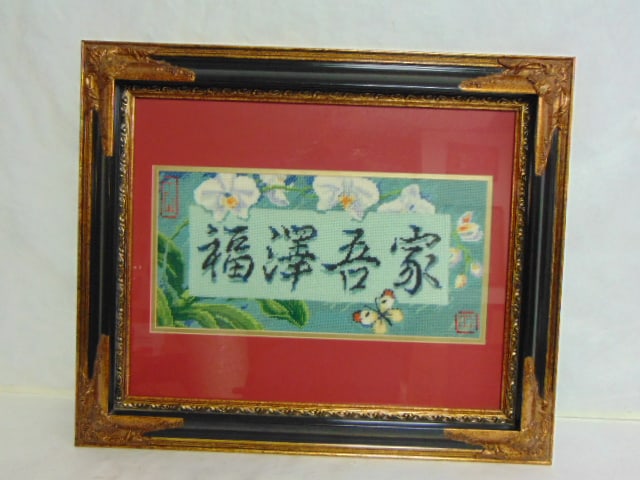 福澤吾家